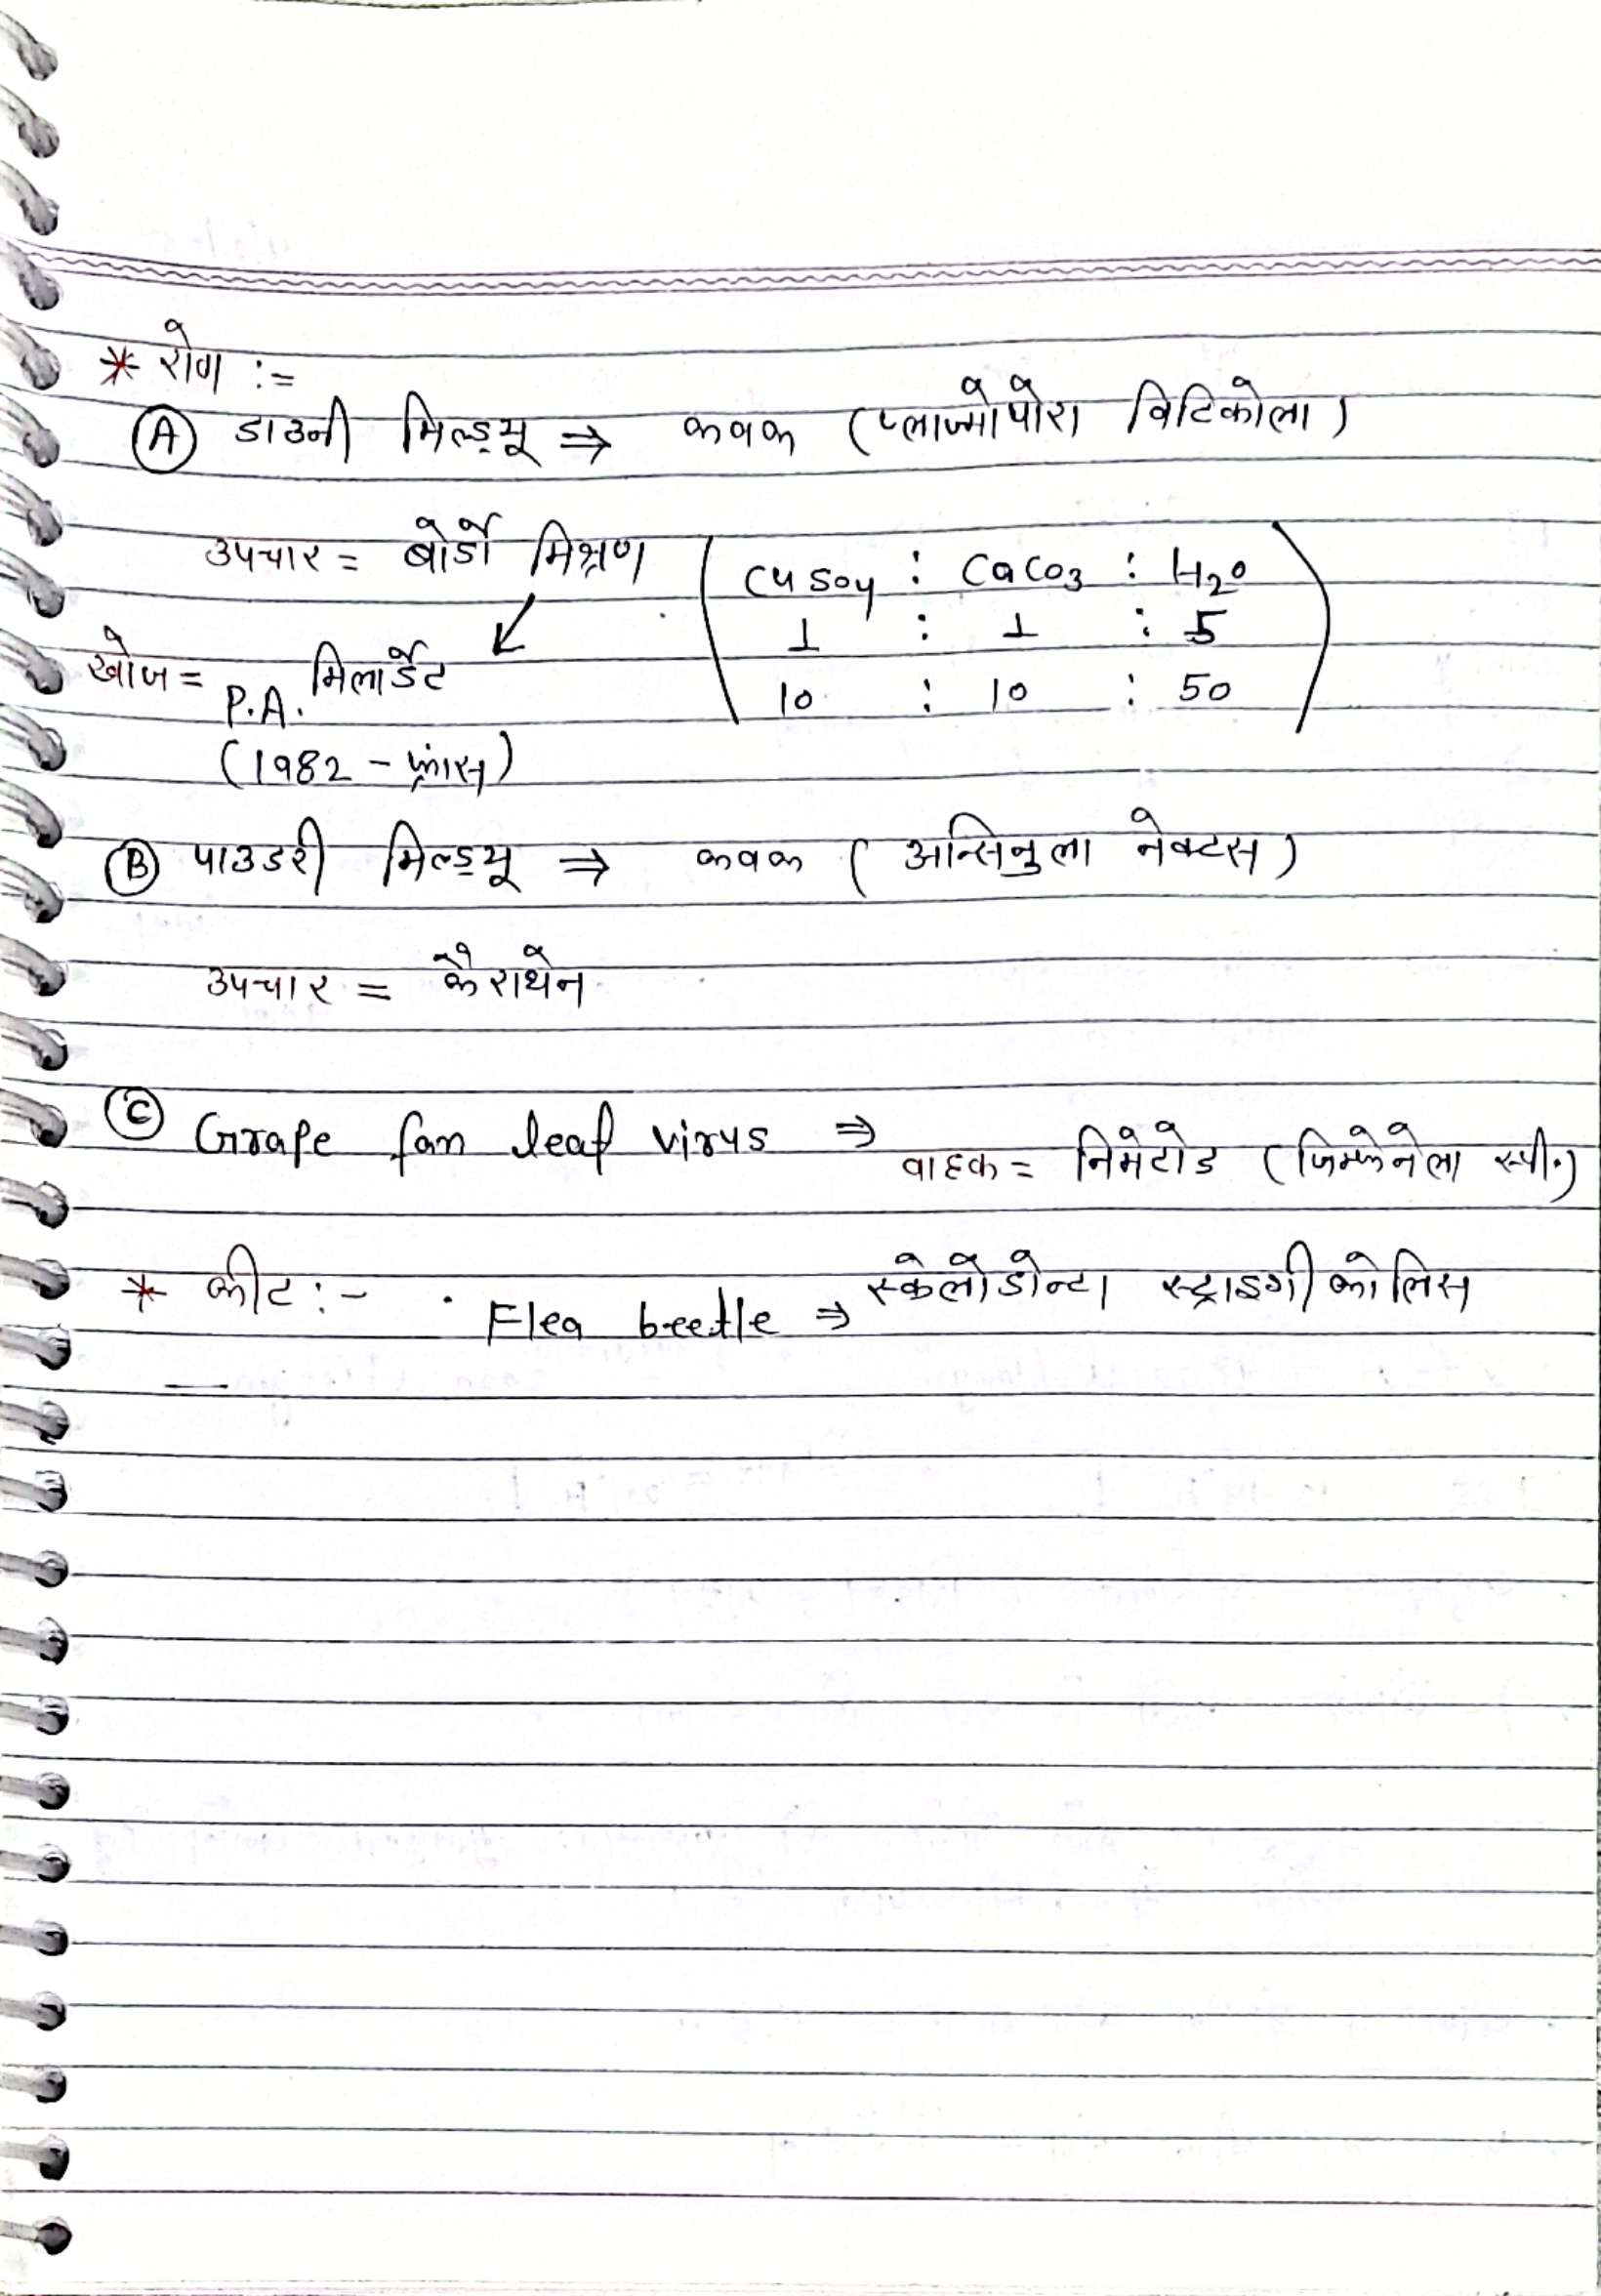 * रोग :=
(A) डाउनी मिल्ड्यू ⇒ कवक (प्लाज्मोपोरा विटिकोला)
उपचार = बोर्डो मिश्रण (CuSO4 : CaCO3 : H2O
1 : 1 : 5
10 : 10 : 50)
खोज = P.A. मिलार्डेट
(1982 - फ्रांस)
(B) पाउडरी मिल्ड्यू ⇒ कवक (अन्सिनुला नेक्टस)
उपचार = कैराथेन
(C) Grape fan leaf virus ⇒ वाहक = निमेटोड (जिम्फेनेला स्पी.)
* कीट :- . Flea beetle ⇒ स्केलोडोन्टा स्ट्राइगीकोलिस